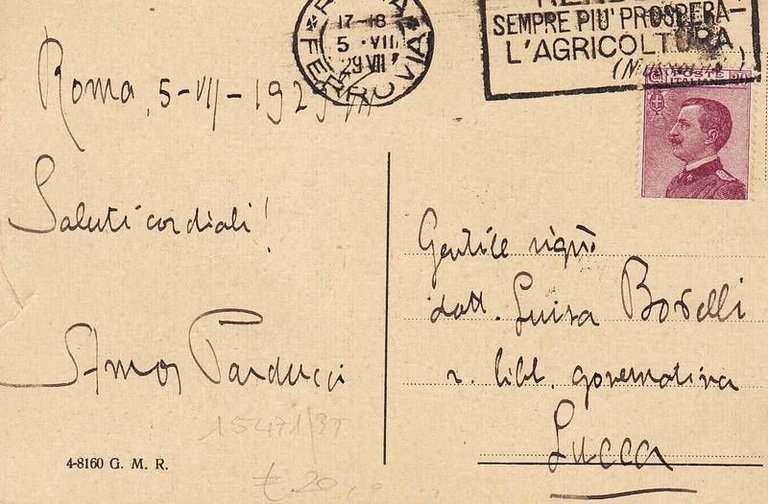 17-18
5 · VII
29 VII
FERROVIA
SEMPRE PIU' PROSPERA
L'AGRICOLTURA
POSTE
ITALIANE
Roma, 5-VII-1929 VII
Saluti cordiali!
Amos Parducci
4-8160 G. M. R.
15471/37
€ 20
Gentile sig.
dott. Luisa Borelli
r. bibl. governativa
Lucca